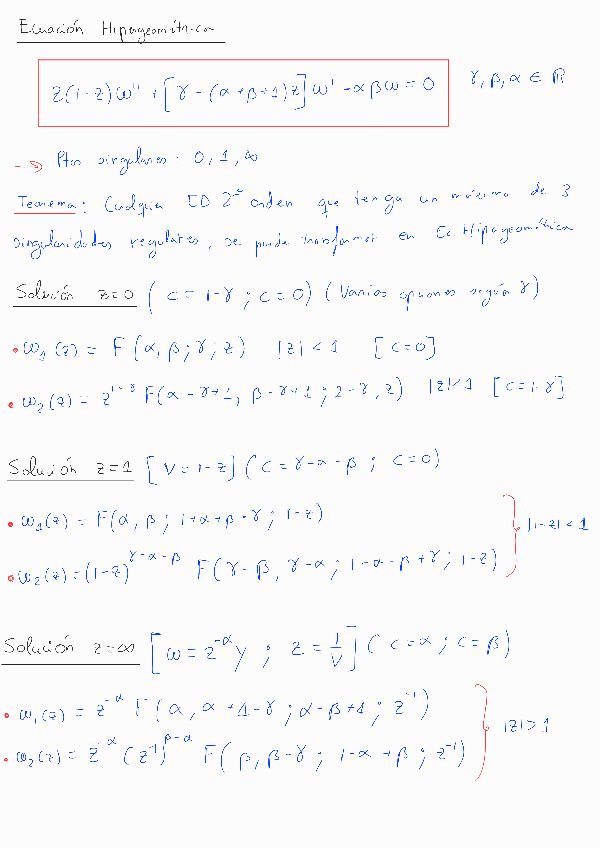 Ecuación Hipergeométrica
z(1-z)ω'' + [γ - (α+β+1)z] ω' - αβω = 0   γ, β, α ∈ ℝ
→ Ptos singulares: 0, 1, ∞
Teorema: Cualquier ED 2º orden que tenga un máximo de 3
singularidades regulares, se puede transformar en Ec. Hipergeométrica
Solución z=0 ( c = 1-γ ; c=0) (Varias opciones según γ)
• ω₁(z) = F(α, β; γ; z)   |z| < 1   [c=0]
• ω₂(z) = z^{1-γ} F(α-γ+1, β-γ+1; 2-γ, z)   |z|<1   [c=1-γ]
Solución z=1 [V=1-z] (c = γ-α-β ; c=0)
• ω₁(z) = F(α, β ; 1+α+β-γ ; 1-z)
|1-z| < 1
• ω₂(z) = (1-z)^{γ-α-β} F(γ-β, γ-α ; 1-α-β+γ ; 1-z)
Solución z=∞ [ω = z^{-α} y ; z = 1/V] ( c=α ; c=β)
• ω₁(z) = z^{-α} F(α, α+1-γ ; α-β+1 ; z^{-1})
|z| > 1
• ω₂(z) = z^{-α} (z^{-1})^{β-α} F(β, β-γ ; 1-α+β ; z^{-1})